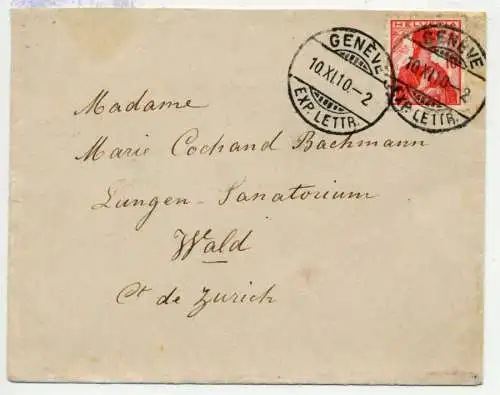 HELVETIA
GENÈVE
10.XI.10.-2
EXP. LETTR.
GENÈVE
10.XI.10.-2
EXP. LETTR.
Madame
Marie Cochand Bachmann
Lungen-Sanatorium
Wald
Ct de Zurich